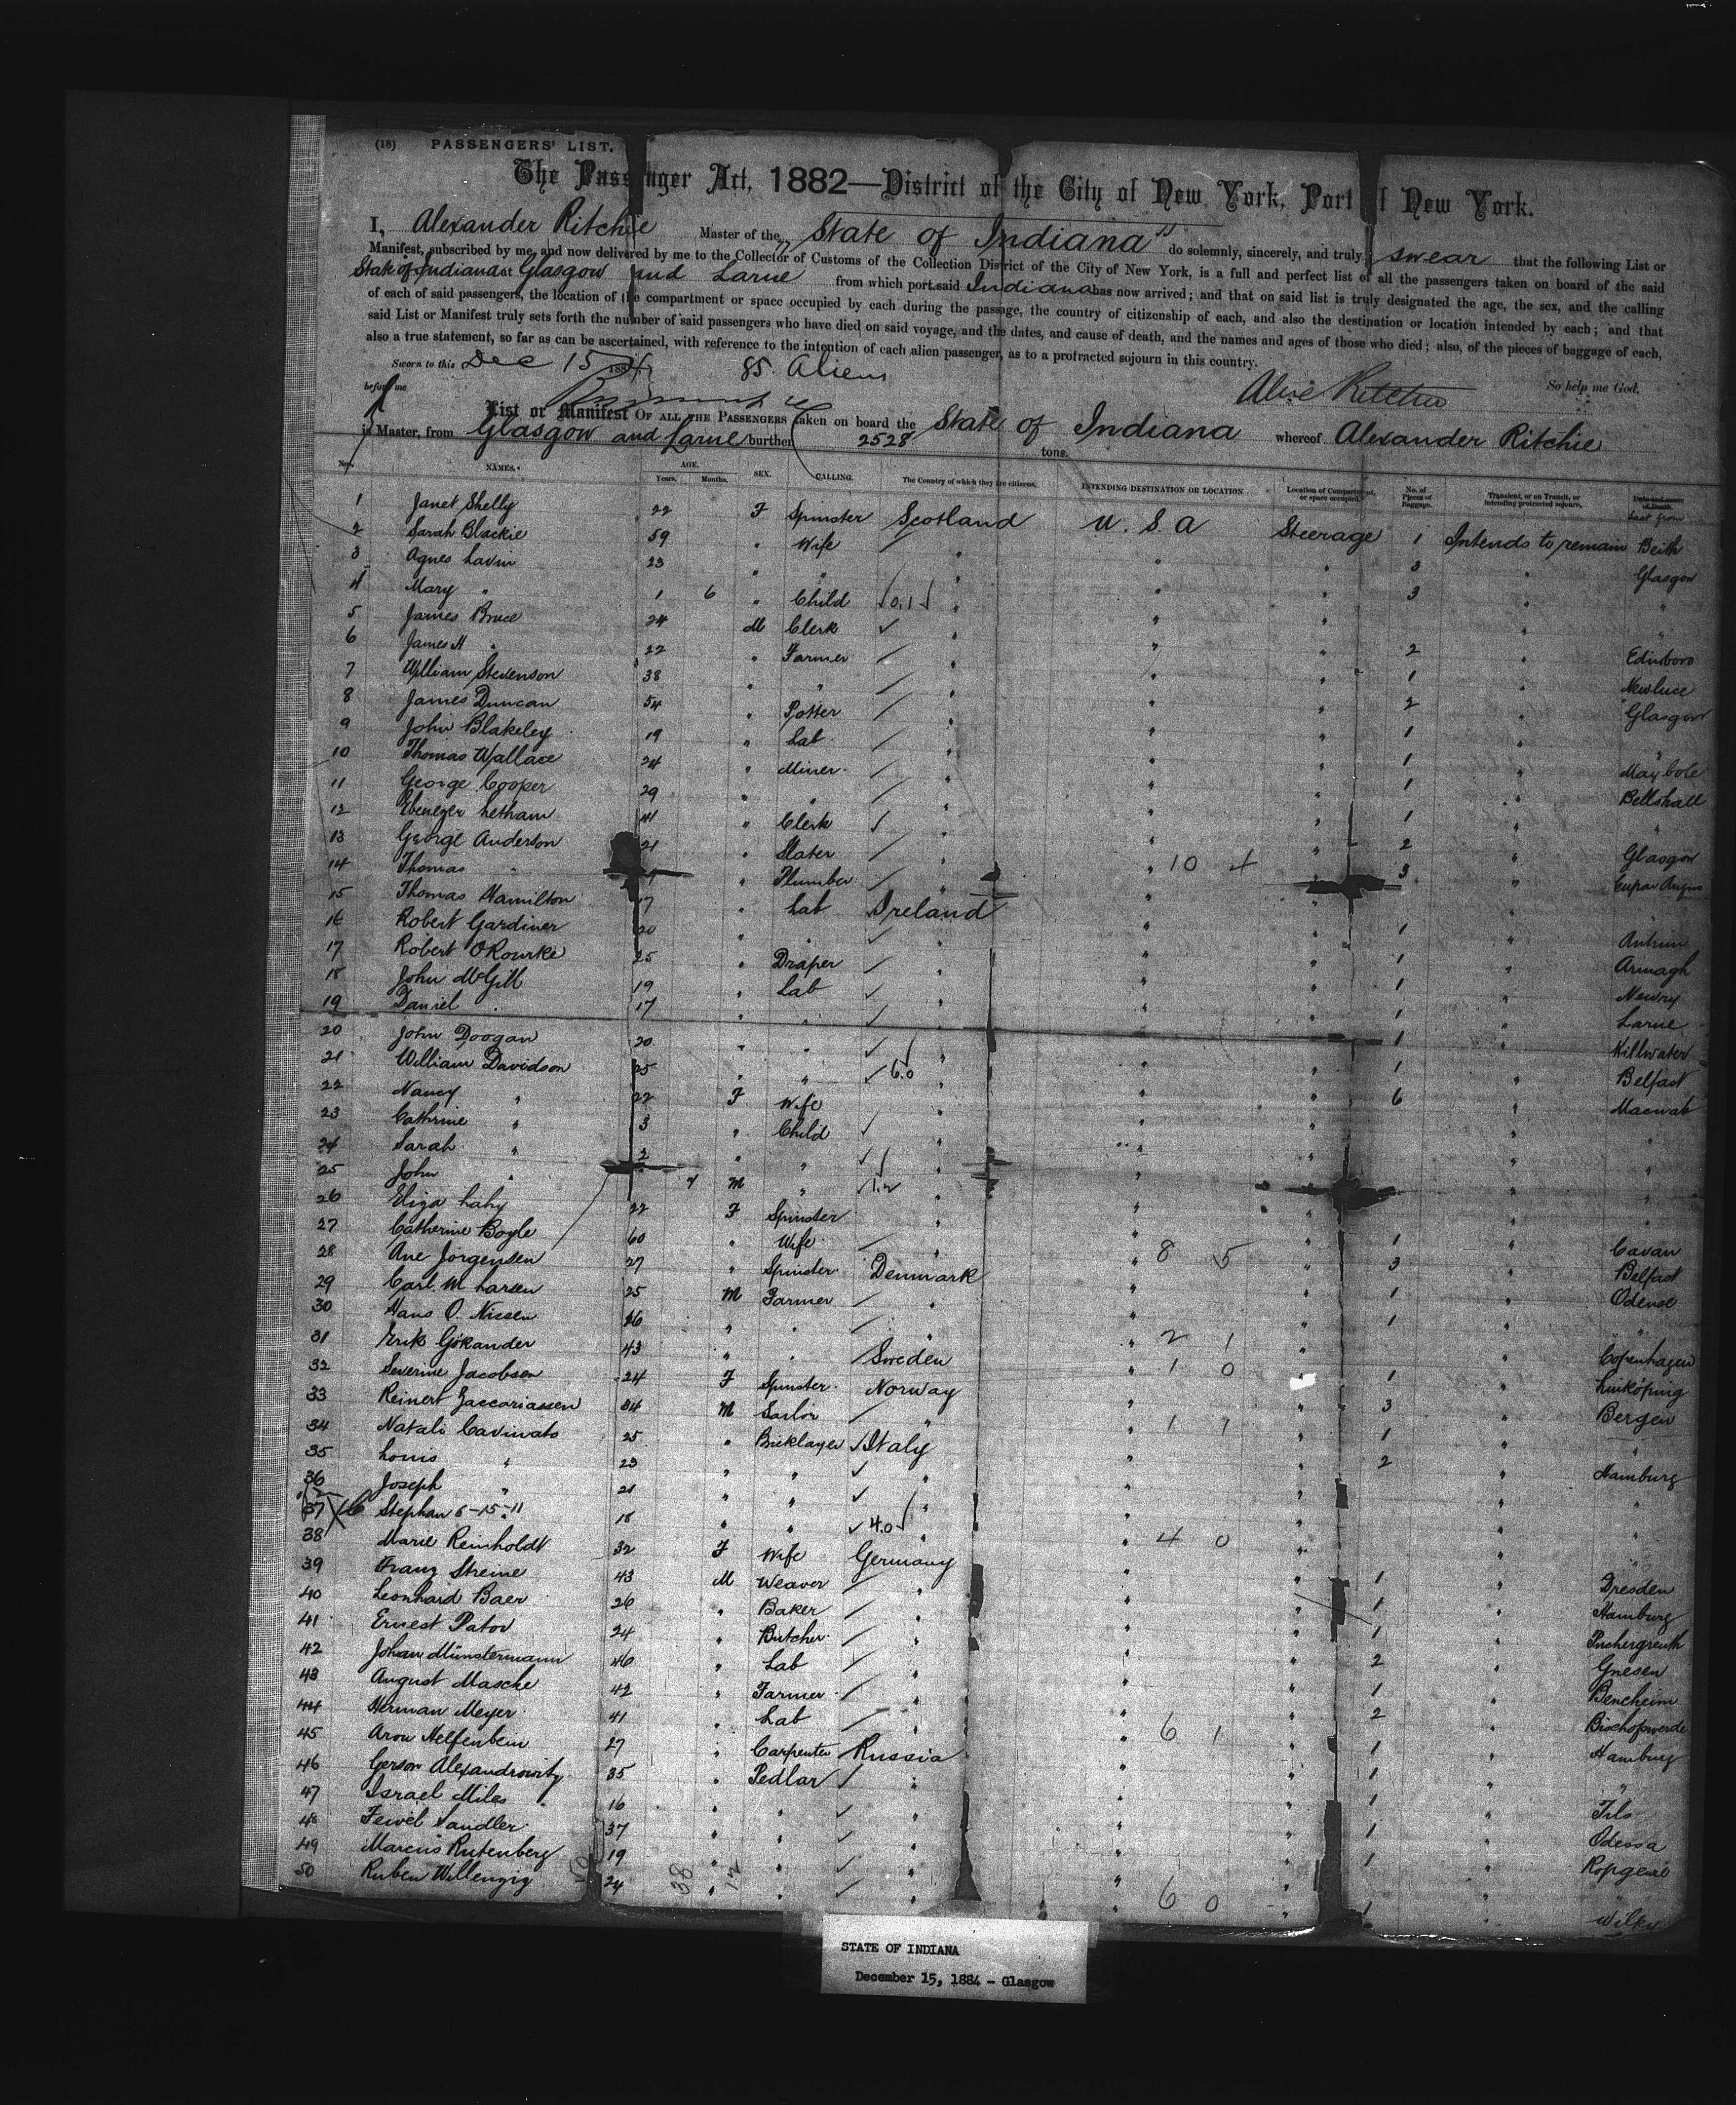 (18) PASSENGERS' LIST.
The Passenger Act, 1882—District of the City of New York, Port of New York.
I, Alexander Ritchie Master of the "State of Indiana" do solemnly, sincerely, and truly swear that the following List or
Manifest, subscribed by me, and now delivered by me to the Collector of Customs of the Collection District of the City of New York, is a full and perfect list of all the passengers taken on board of the said
State of Indiana at Glasgow and Larne from which port said Indiana has now arrived; and that on said list is truly designated the age, the sex, and the calling
of each of said passengers, the location of the compartment or space occupied by each during the passage, the country of citizenship of each, and also the destination or location intended by each; and that
said List or Manifest truly sets forth the number of said passengers who have died on said voyage, and the dates, and cause of death, and the names and ages of those who died; also, of the pieces of baggage of each,
also a true statement, so far as can be ascertained, with reference to the intention of each alien passenger, as to a protracted sojourn in this country.
Sworn to this Dec 15 1884 85 Aliens So help me God.
before me Alexr Ritchie
List or Manifest OF ALL THE PASSENGERS taken on board the State of Indiana whereof Alexander Ritchie
is Master, from Glasgow and Larne burthen 2528 tons.
No. NAMES. AGE. Years. Months. SEX. CALLING. The Country of which they are citizens. INTENDING DESTINATION OR LOCATION Location of Compartment, or space occupied. No. of Pieces of Baggage. Transient, or on Transit, or intending protracted sojourn. Last from
1 Janet Shelly 22 F Spinster Scotland U.S.A Steerage 1 Intends to remain Beith
2 Sarah Blackie 59 " Wife " " " 3 " Glasgow
3 Agnes Lavin 23 " " " " " 3 " "
4 Mary " 1 6 " Child 0.1 " " " " "
5 James Bruce 24 M Clerk " " " 2 " Edinboro
6 James H " 22 " Farmer " " " 1 " Newluce
7 William Stevenson 38 " " " " " 2 " Glasgow
8 James Duncan 54 " Potter " " " 1 " "
9 John Blakeley 19 " Lab " " " 1 " Maybole
10 Thomas Wallace 24 " Miner " " " 1 " Bellshall
11 George Cooper 29 " " " " " 1 " "
12 Ebenezer Letham 41 " Clerk " " " 2 " Glasgow
13 George Anderson 21 " Slater " " " 3 " Cupar Angus
14 Thomas " " Plumber " " 10 4 " " "
15 Thomas Hamilton 17 " Lab Ireland " " 1 " Antrim
16 Robert Gardiner 20 " " " " " 1 " Armagh
17 Robert O'Rourke 25 " Draper " " " 1 " Newry
18 John McGill 19 " Lab " " " 1 " Larne
19 Daniel " 17 " " " " " 1 " Killwater
20 John Doogan 20 " " " " " 1 " Belfast
21 William Davidson 25 " " 6.0 " " " 6 "
22 Nancy " 22 F Wife " " " "
23 Cathrine " 3 " Child " " " " "
24 Sarah " 2 " " " " " " "
25 John " M " 1.2 " " " "
26 Eliza Lahy 22 F Spinster " " " 1 " Cavan
27 Catherine Boyle 60 " Wife " " 8 5 " 3 " Belfast
28 Ane Jorgensen 27 " Spinster Denmark " " 1 " Odense
29 Carl M Larsen 25 M Farmer " " " 1 " "
30 Hans O. Nissen 26 " " " " 2 1 " " Copenhagen
31 Erik Gokander 43 " " Sweden " 1 0 " 1 " Linköping
32 Severine Jacobsen 24 F Spinster Norway " " 3 " Bergen
33 Reinert Zaccariassen 34 M Sailor " " 1 1 " 1 " "
34 Natali Cavinato 25 " Bricklayer Italy " " 2 " Hamburg
35 Louis " 23 " " " " " " "
36 Joseph " 21 " " " " " " "
37 Stephan 6-15-11 18 " " 4.0 " " 4 0 " " "
38 Marie Reinholdt 32 F Wife Germany " " 1 " Dresden
39 Franz Streine 43 M Weaver " " " 1 " Hamburg
40 Leonhard Baer 26 " Baker " " " 1 "
41 Ernest Pator 24 " Butcher " " " 2 " Gnesen
42 Johan Münstermann 46 " Lab " " " 1 " Bencheim
43 August Masche 42 " Farmer " " " 2 " Bischopwerde
44 Herman Meyer 41 " Lab " " 6 1 " 1 " Hamburg
45 Aron Helfenbein 27 " Carpenter Russia " " 1 " "
46 Gerson Alexandrowitz 35 " Pedlar " " " 1 " Tils
47 Israel Miles 16 " " " " " 1 " Odessa
48 Feivel Sandler 37 " " " " " 1 "
49 Marcus Rutenberg 19 " " " " " "
50 Ruben Willenzig 24 " " " " 6 0 " 1 "
50 38 12
STATE OF INDIANA
December 15, 1884 - Glasgow